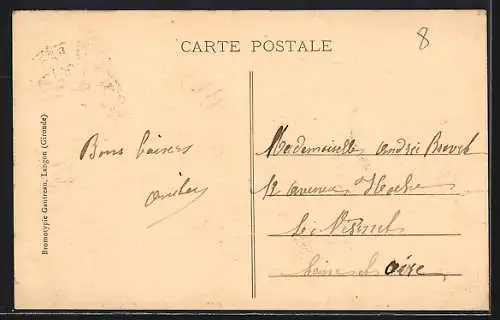 CARTE POSTALE
8
Bromotypie Gautreau, Langon (Gironde)
Bons baisers
Mademoiselle Andrée
12 avenue Hoche
Le Vésinet
Seine et Oise